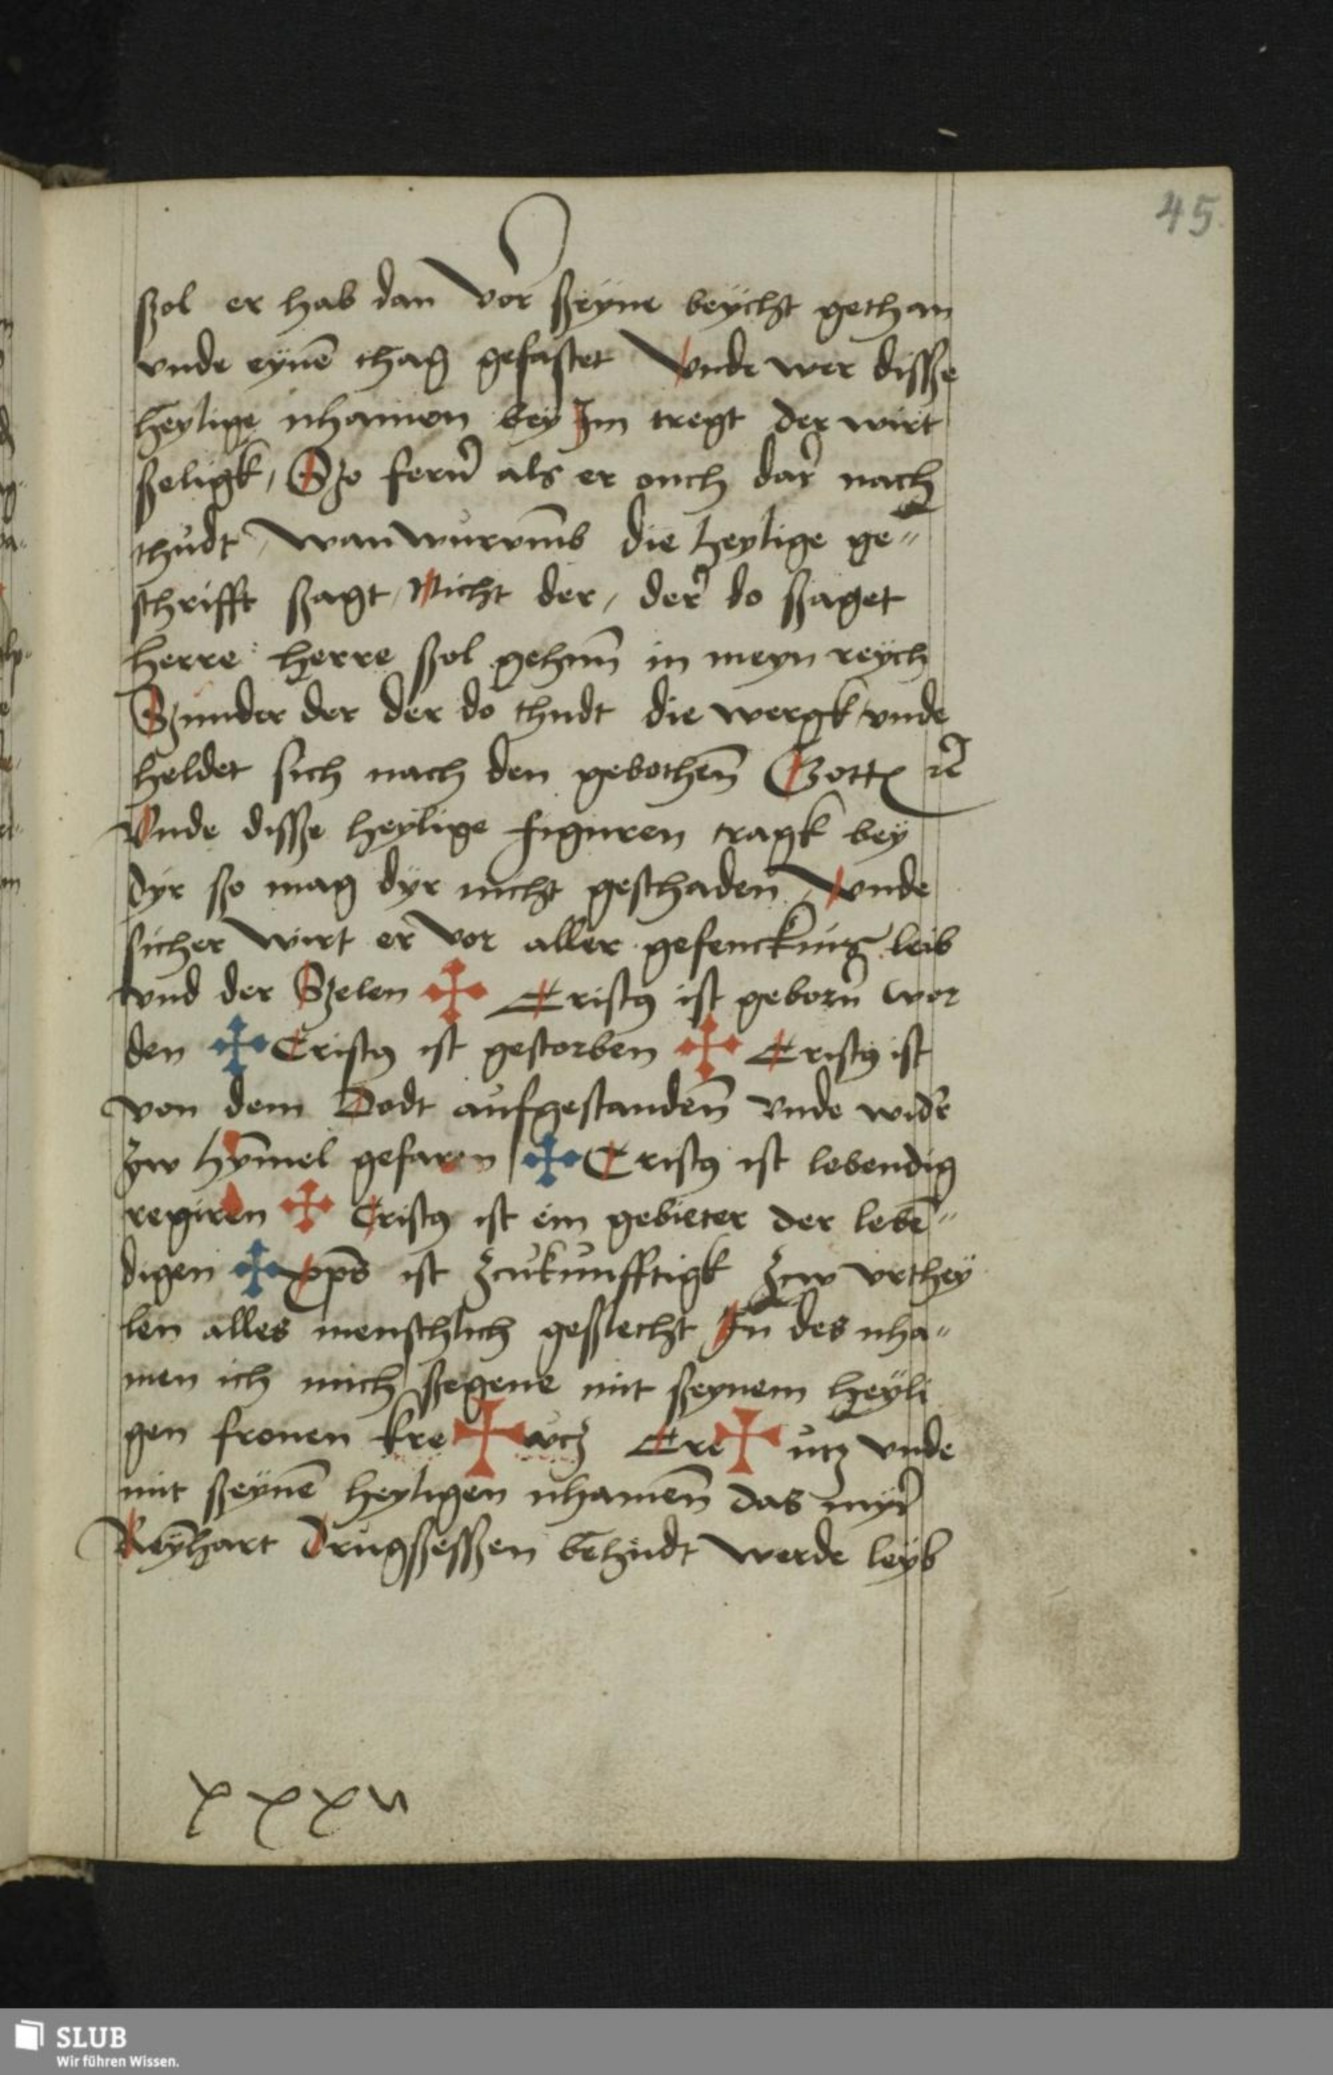 45.
szol er hab dan vor szeyne beycht gethan
vnde eynē thag gefastet Vnde wer disse
heylige nhamen bey Im tregt der wirt
szeligk, Szo fern als er ouch dar nach
thudt, wan wurvmb die heylige ge=
schrifft szagt, Nicht der, der do szaget
herre herre szol gehnn in meyn reych
Szunder der der do thudt die wergk vnde
heldet sich nach den gebothen̄ Gottes
Vnde disse heylige figuren tragk bey
dyr so mag dyr nicht geschaden, Vnde
sicher wirt er vor aller gefencknus leib
vnd der Szelen ✠ Cristus ist geborn wor
den ✠ Cristus ist gestorben ✠ Cristus ist
von dem Dodt aufgestanden̄ Vnde wider
zw hymmel gefaren ✠ Cristus ist lebendig
regiren ✠ Cristus ist ein gebieter der lebē=
digen ✠ xp̄s ist zcukunfftigk zcw vrthey
len alles menschlich geslecht In des nha=
men ich mich szegene mit szeynem heyli
gen fronen kre ✠ wcz Cre ✠ utz vnde
mit szeynē heyligen nhamen̄ das myr
Reynhart Drugszessen behudt werde leyb
xxxv
SLUB
Wir führen Wissen.